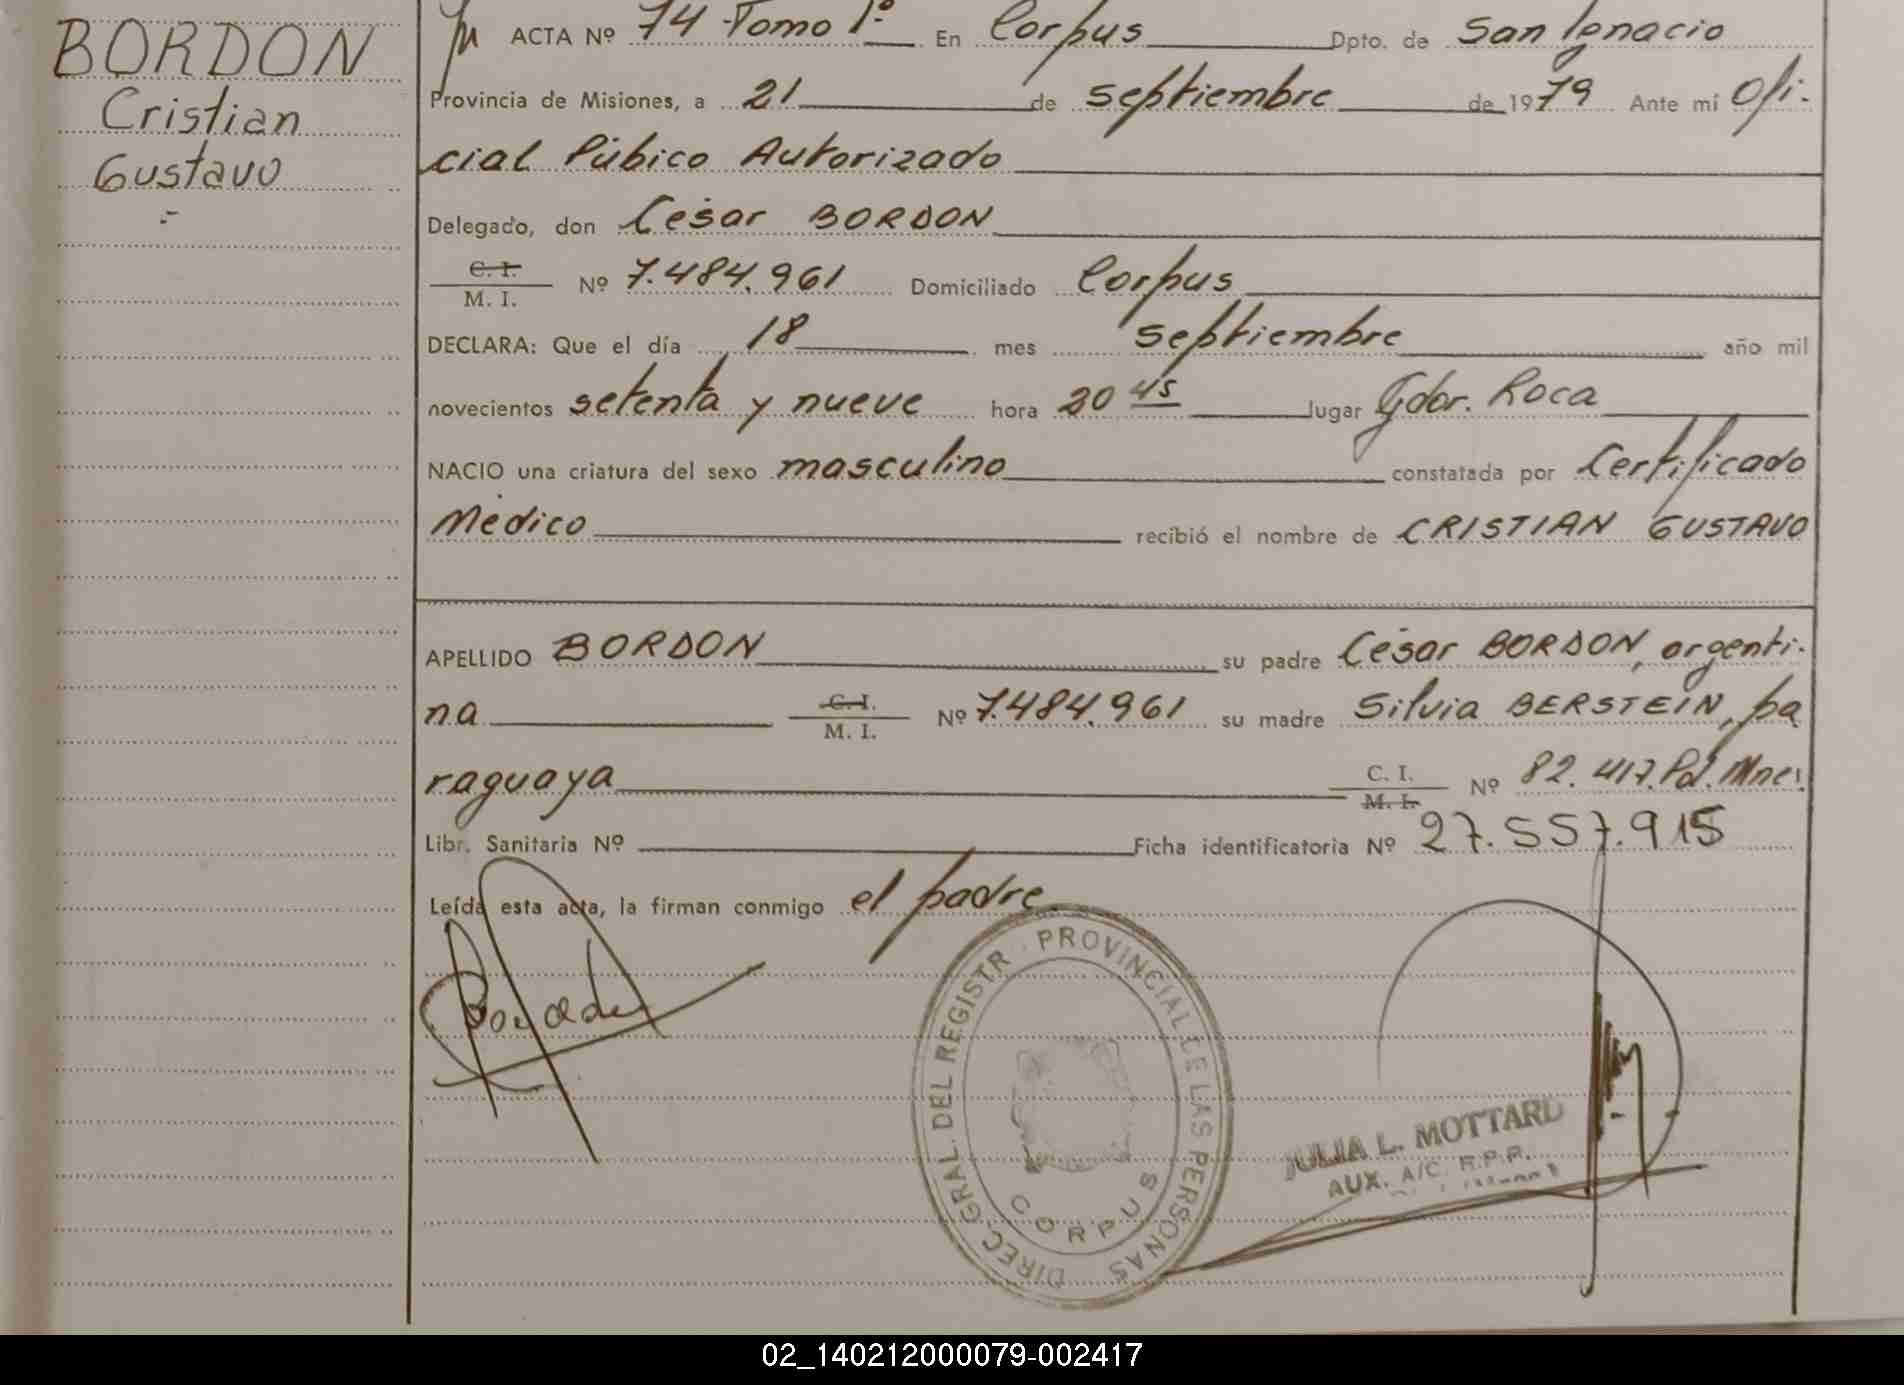 BORDON
Cristian
Gustavo
ACTA Nº 74 Tomo 1º En Corpus Dpto. de San Ignacio
Provincia de Misiones, a 21 de septiembre de 1979 Ante mi Ofi-
cial Púbico Autorizado
Delegado, don César BORDON
C. I.
M. I. Nº 7.484.961 Domiciliado Corpus
DECLARA: Que el día 18 mes septiembre año mil
novecientos setenta y nueve hora 20 45 lugar Gdor. Roca
NACIO una criatura del sexo masculino constatada por Certificado
Médico recibió el nombre de CRISTIAN GUSTAVO
APELLIDO BORDON su padre César BORDON, argenti-
na C. I.
M. I. Nº 7.484.961 su madre Silvia BERSTEIN, pa
raguaya C. I.
M. I. Nº 82.417. Pol. Mnes.
Libr. Sanitaria Nº Ficha identificatoria Nº 27.557.915
Leída esta acta, la firman conmigo el padre
DIREC. GRAL. DEL REGISTR. PROVINCIAL DE LAS PERSONAS
CORPUS
JULIA L. MOTTARD
AUX. A/C. R.P.P.
02_140212000079-002417